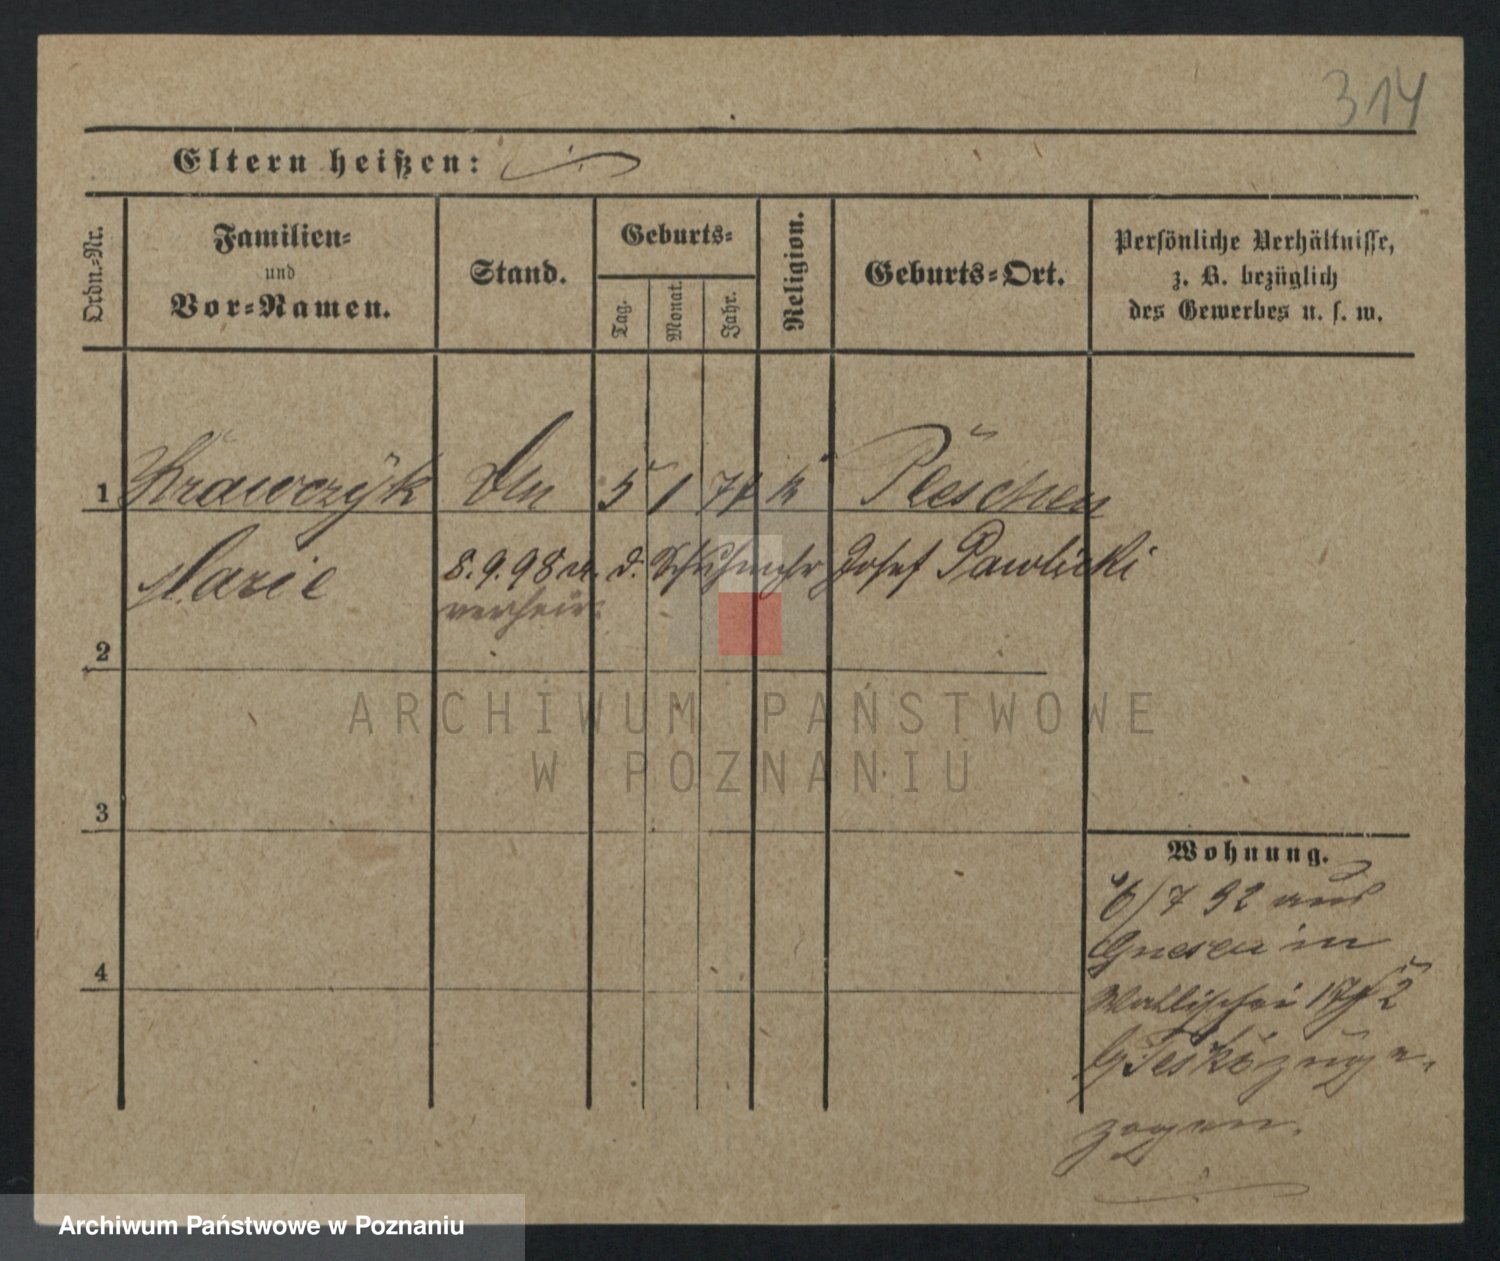 314
Eltern heißen:
Ordn.-Nr.
Familien-
und
Vor-Namen.
Stand.
Geburts-
Tag.
Monat.
Jahr.
Religion.
Geburts-Ort.
Persönliche Verhältnisse,
z. B. bezüglich
des Gewerbes u. s. w.
1 Krawczyk 5 1 74 k Pleschen
Marie 8.9.98 m. d. Schuhmchr Josef Pawlicki
verheir.
2
ARCHIWUM PAŃSTWOWE
W POZNANIU
3
Wohnung.
6/7 92 aus
Gnesen in
4
Wallischei 17/
zuge
zogen.
Archiwum Państwowe w Poznaniu